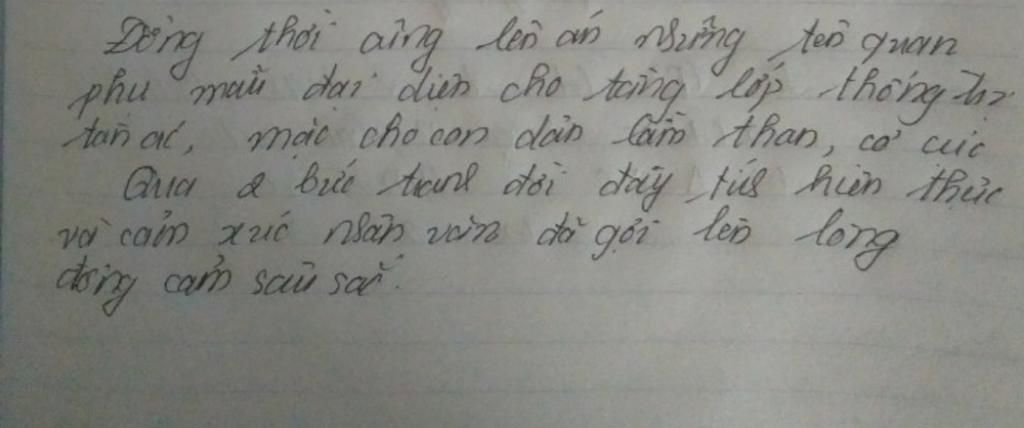 Đồng thời cũng lên án những tên quan
phụ mẫu đại diện cho tầng lớp thống trị
tàn ác, mặc cho con dân lầm than, cơ cực
Qua 2 bức tranh đời đầy tính hiện thực
và cảm xúc nhân văn đã gợi lên lòng
đồng cảm sâu sắc.